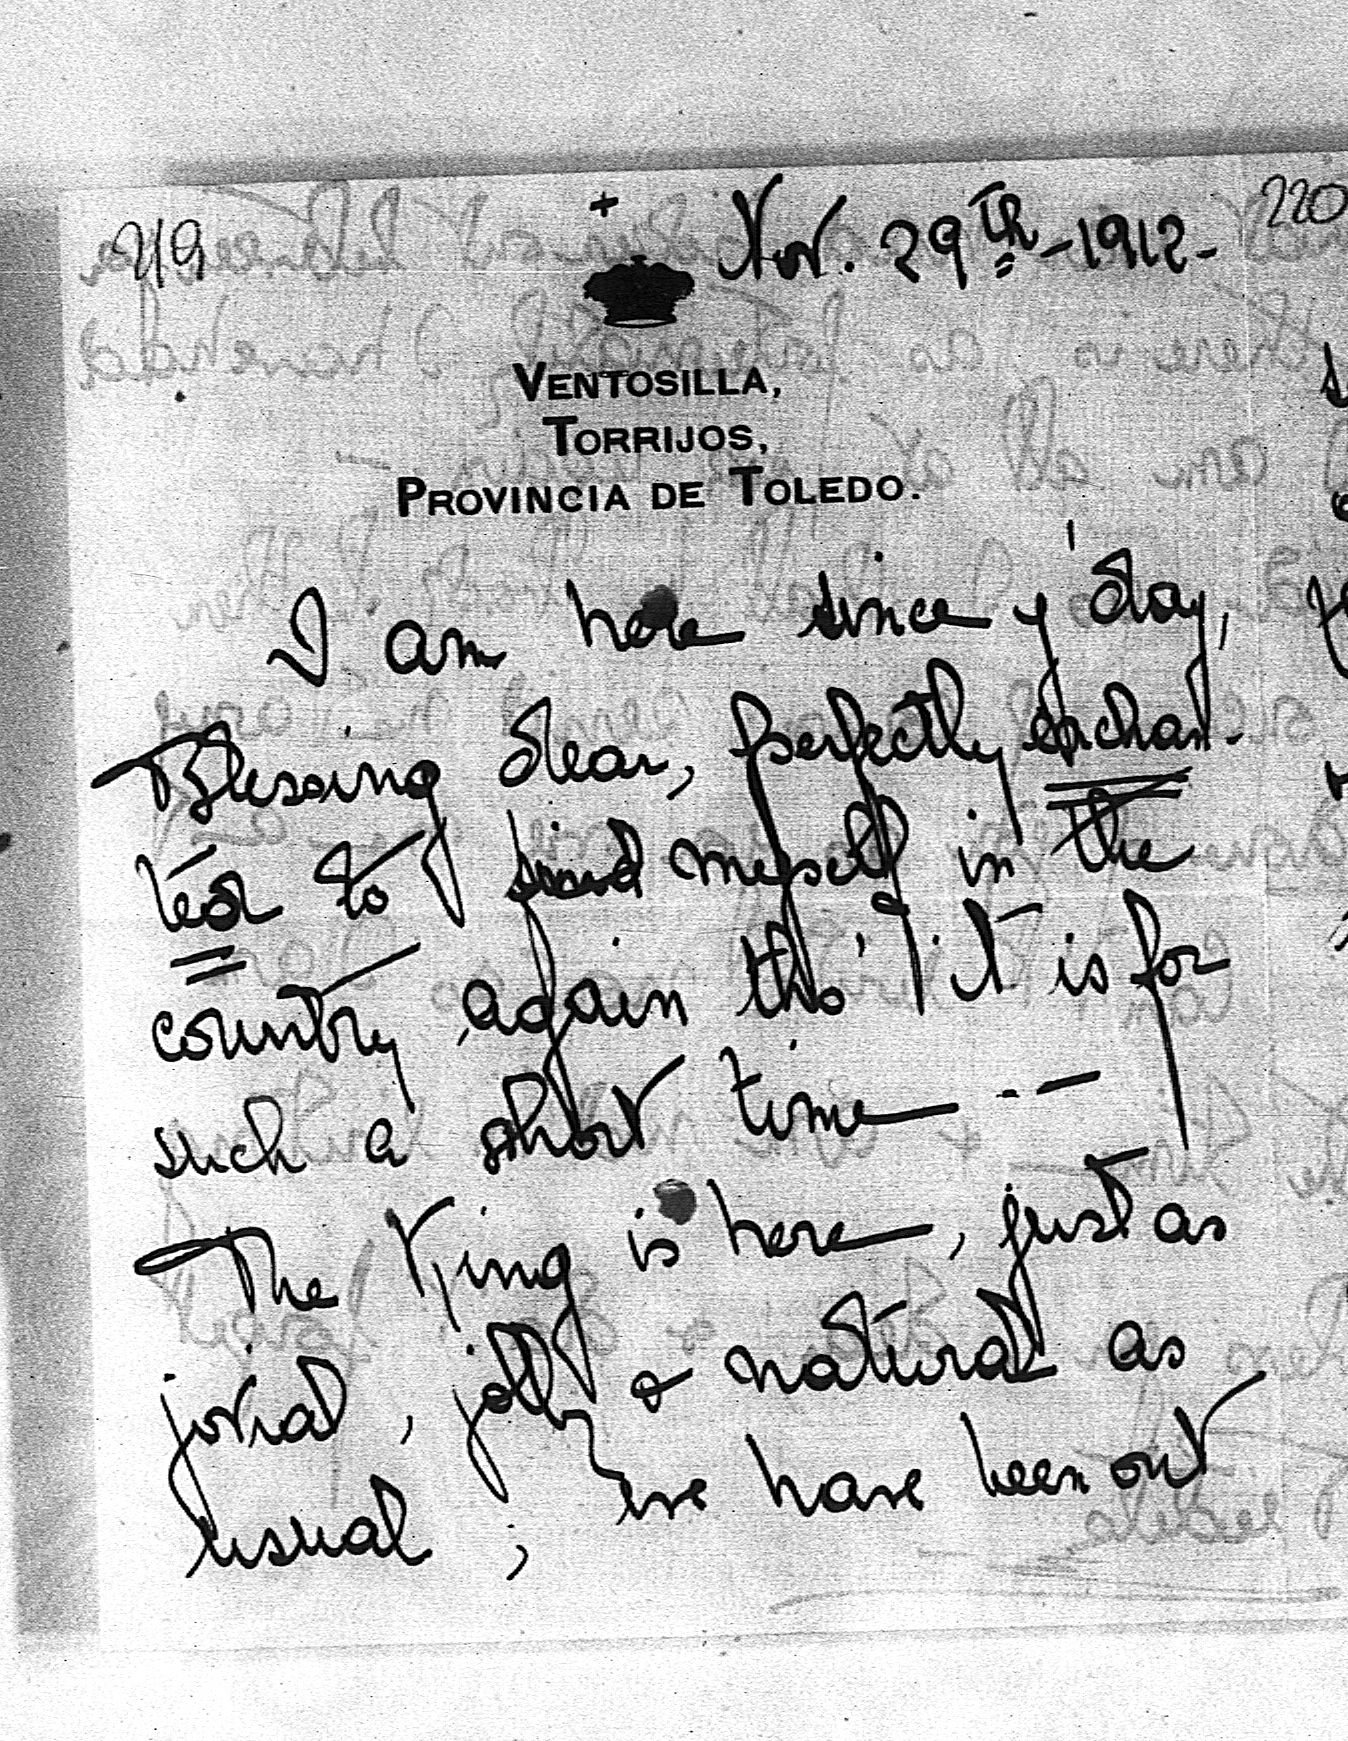 219
+ Nov. 29th - 1912 -
220
VENTOSILLA,
TORRIJOS,
PROVINCIA DE TOLEDO.
I am here since y'day,
Blessing dear, perfectly enchan-
ted to find myself in the
country again tho' it is for
such a short time - - -
The King is here, just as
jovial, jolly & natural as
usual; we have been out